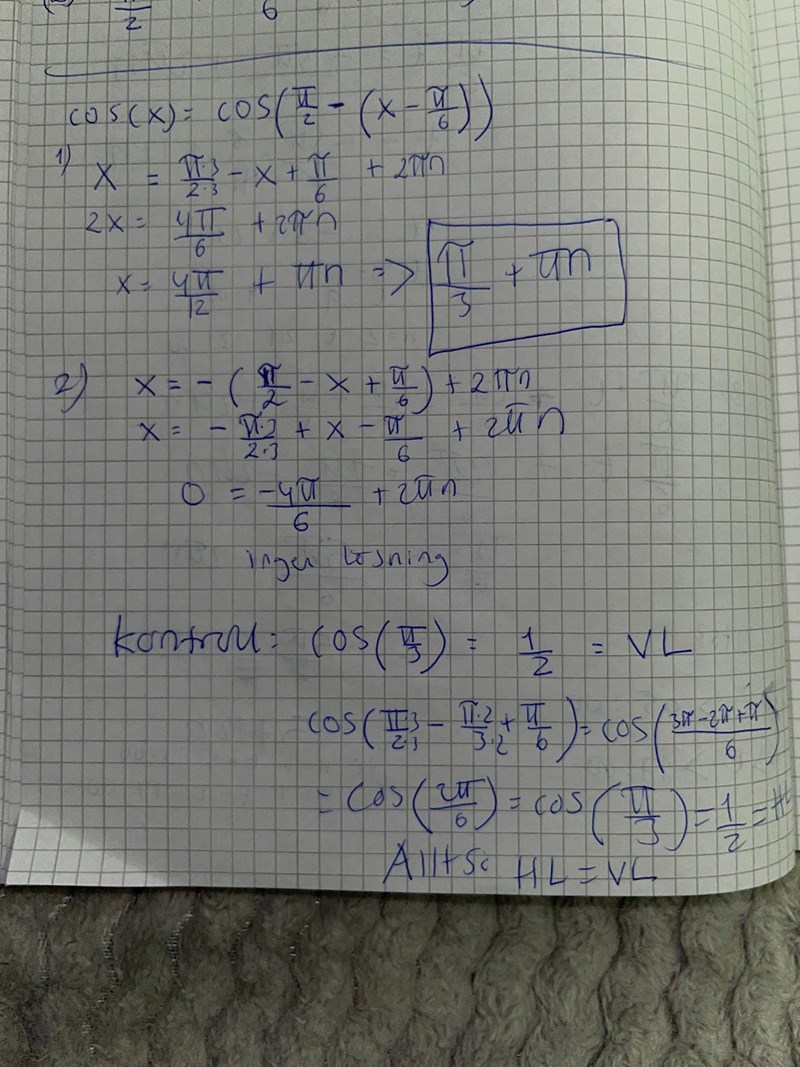 π/2 6
cos(x) = cos(π/2 - (x - π/6))
1) x = π·3/2·3 - x + π/6 + 2πn
2x = 4π/6 + 2πn
x = 4π/12 + πn => π/3 + πn
2) x = - (π/2 - x + π/6) + 2πn
x = - π·3/2·3 + x - π/6 + 2πn
0 = -4π/6 + 2πn
ingen lösning
Kontroll: cos(π/3) = 1/2 = VL
cos(π·3/2·3 - π·2/3·2 + π/6) = cos(3π-2π+π/6)
= cos(2π/6) = cos(π/3) = 1/2 = HL
Alltså HL = VL